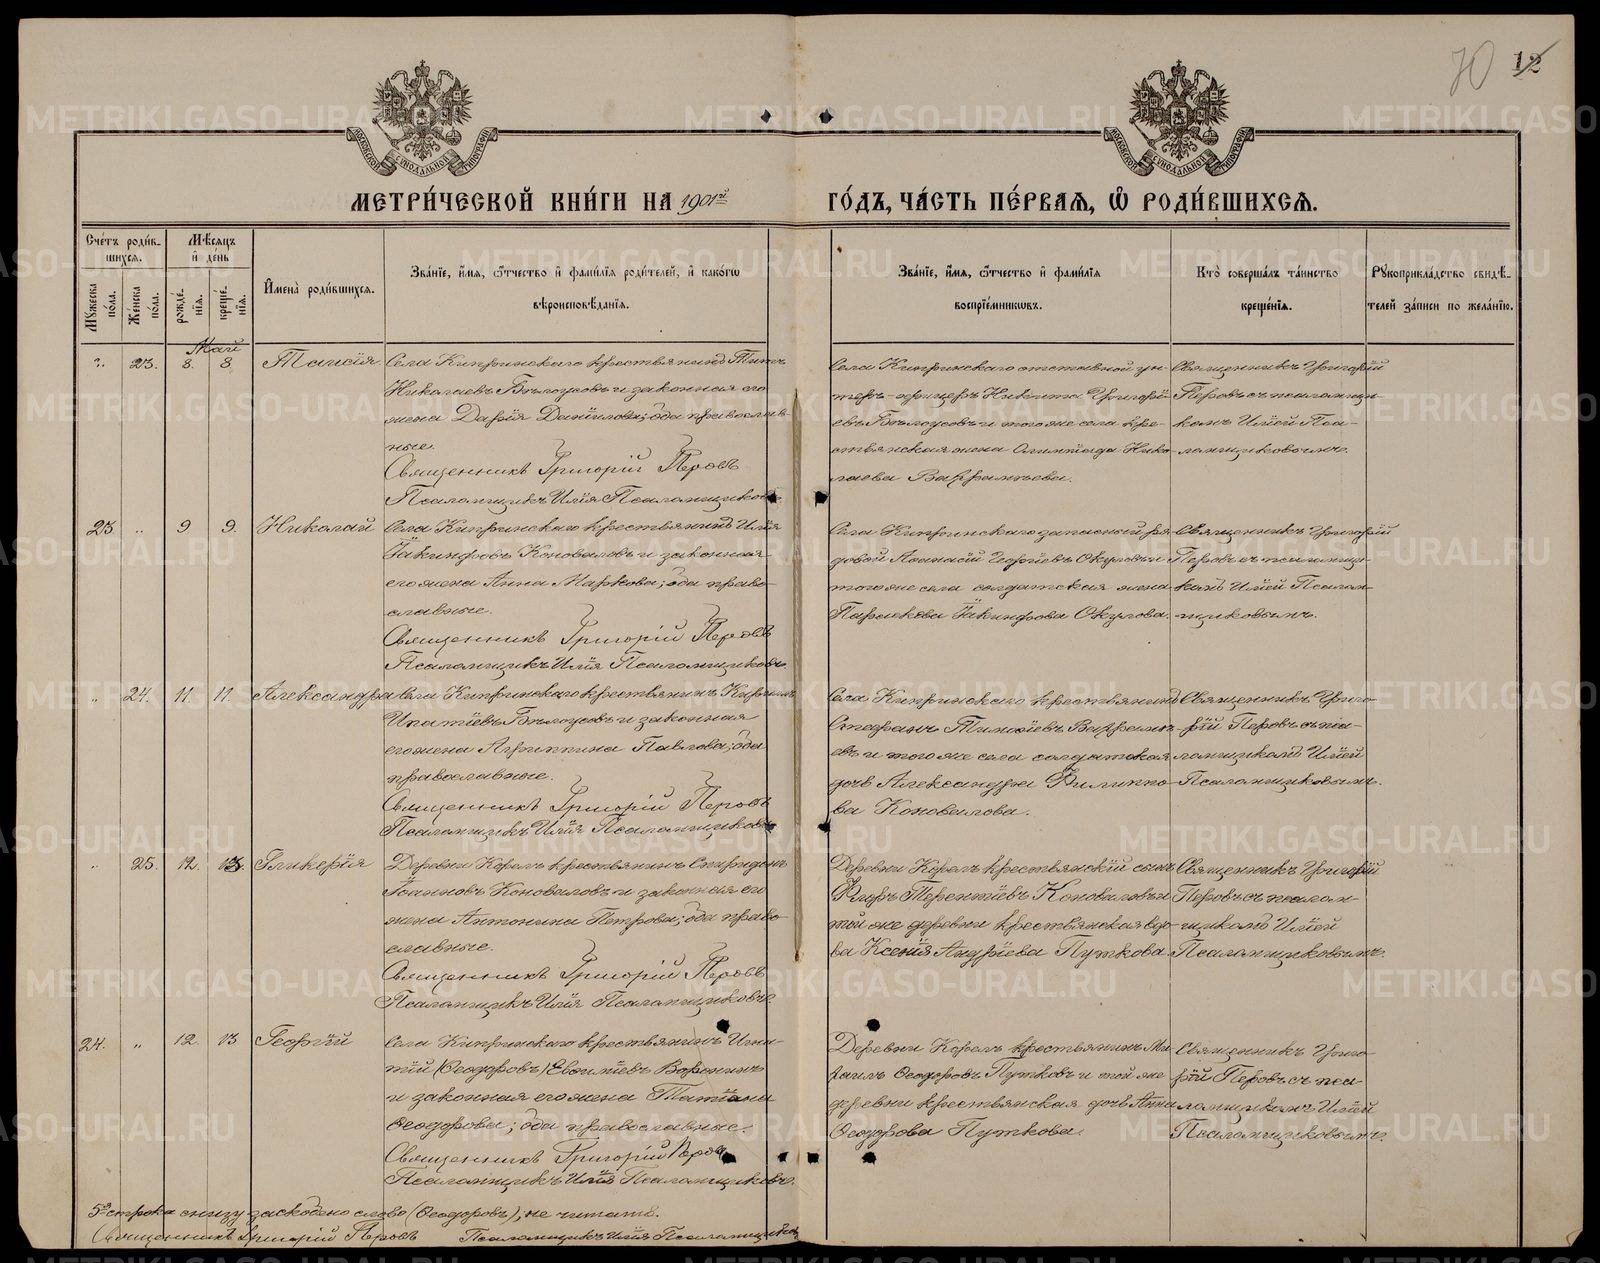 70 12
МЕТРИ́ЧЕСКОЙ КНИ́ГИ НА 1901й ГО́ДЪ, ЧА́СТЬ ПЕ́РВАѦ, Ѽ РОДИ́ВШИХСѦ.
Сче́тъ роди́в-
шихся.
Мѣсяцъ
и де́нь
Му́жеска по́ла.
Же́нска по́ла.
рожде́-нія.
креще́-нія.
И́мена роди́вшихся.
Зва́ніе, и́мя, ѿтчество и фами́лія роди́телей, и како́гѡ
вѣроисповѣ́данія.
Зва́ніе, и́мя, ѿтчество и фами́лія
воспріе́мниковъ.
Кто̀ соверша́лъ та́инство
креще́нія.
Рꙋкоприкла́дство свидѣ́-
телей за́писи по жела́нію.
Май
„ 23. 8. 8. Таисія
Села Кипринскаго крестьянинъ Титъ
Николаевъ Бѣлоусовъ и законная его
жена Дарія Даніилова; оба православ-
ные.
Священникъ Григорій Перовъ
Псаломщикъ Илія Псаломщиковъ
Села Кипринскаго отставной ун-
теръ-офицеръ Никита Григорі-
евъ Бѣлоусовъ и того же села кре-
стьянская жена Олимпіада Нико-
лаева Варфоломеева.
Священникъ Григорій
Перовъ съ псаломщи-
комъ Иліей Пса-
ломщиковымъ.
23 „ 9 9. Николай
Села Кипринскаго крестьянинъ Илія
Іакинфовъ Коноваловъ и законная
его жена Анна Маркова; оба право-
славные.
Священникъ Григорій Перовъ
Псаломщикъ Илія Псаломщиковъ.
Села Кипринскаго запасный ря-
довой Аѳанасій Георгіевъ Окуловъ и
того же села солдатская жена
Параскева Іакинфова Окулова.
Священникъ Григорій
Перовъ съ псаломщи-
комъ Иліей Псалом-
щиковымъ.
„ 24. 11. 11. Александра
Села Кипринскаго крестьянинъ Кириллъ
Ипатіевъ Бѣлоусовъ и законная
его жена Агриппина Павлова; оба
православные.
Священникъ Григорій Перовъ
Псаломщикъ Илія Псаломщиковъ
Села Кипринскаго крестьянинъ
Стефанъ
евъ и того же села солдатская
дочь Александра Филиппо-
ва Коновалова.
Священникъ Григо-
рій Перовъ съ пса-
ломщикомъ Иліей
Псаломщиковымъ.
„ 25. 12. 13. Гликерія
Деревни Корелъ крестьянинъ Спиридонъ
Іоанновъ Коноваловъ и законная его
жена Антонина Петрова; оба право-
славные.
Священникъ Григорій Перовъ
Псаломщикъ Илія Псаломщиковъ
Деревни Корелъ крестьянскій сынъ
Киръ Терентіевъ Коноваловъ и
той же деревни крестьянская вдо-
ва Ксенія Андреева Путкова.
Священникъ Григорій
Перовъ съ псалом-
щикомъ Иліей
Псаломщиковымъ.
24. „ 12. 13 Георгій
Села Кипринскаго крестьянинъ Игна-
тій (Ѳеодоровъ) Евѳиміевъ Воронинъ
и законная его жена Татіана
Ѳеодорова; оба православные.
Священникъ Григорій Перовъ
Псаломщикъ Илія Псаломщиковъ.
Деревни Корелъ крестьянинъ Ми-
хаилъ Ѳеодоровъ Путковъ и той же
деревни крестьянская дочь Анна
Ѳеодорова Путкова.
Священникъ Григо-
рій Перовъ съ пса-
ломщикомъ Иліей
Псаломщиковымъ.
5я строка снизу заскоблено слово (Ѳеодоровъ), не читать.
Священникъ Григорій Перовъ Псаломщикъ Илія Псаломщиковъ